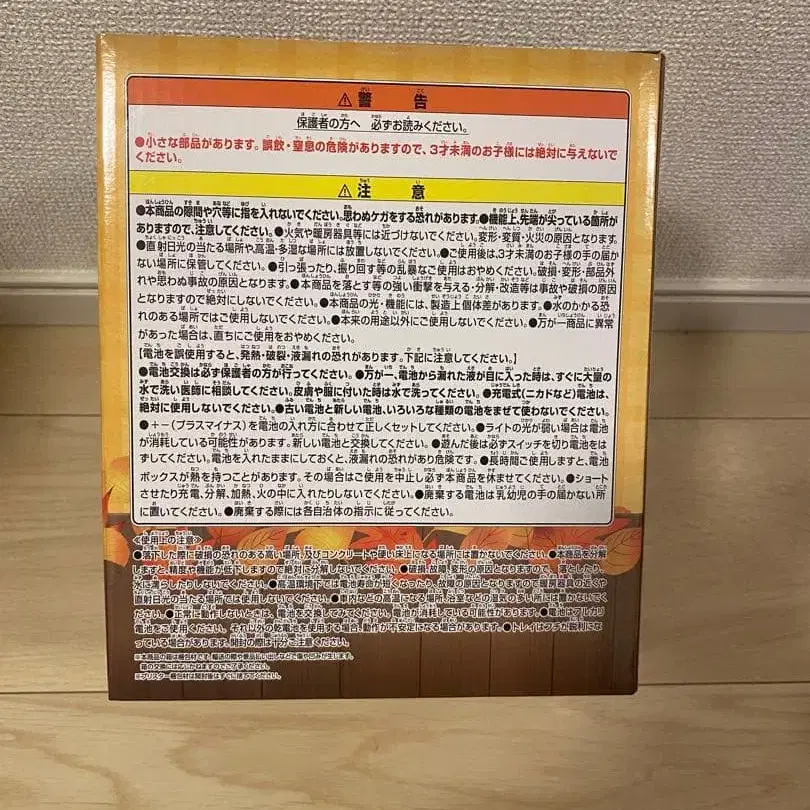 ⚠警告
保護者の方へ 必ずお読みください。
●小さな部品があります。誤飲・窒息の危険がありますので、3才未満のお子様には絶対に与えないで
ください。
⚠注意
●本商品の隙間や穴等に指を入れないでください。思わぬケガをする恐れがあります。●機能上、先端が尖っている箇所が
ありますので、注意してください。●火気や暖房器具等には近づけないでください。変形・変質・火災の原因となります。
●直射日光の当たる場所や高温・多湿な場所には放置しないでください。●ご使用後は、3才未満のお子様の手の届か
ない場所に保管してください。●引っ張ったり、振り回す等の乱暴なご使用はおやめください。破損・変形・部品外
れや思わぬ事故の原因となります。●本商品を落とす等の強い衝撃を与える・分解・改造等は事故や破損の原因
となりますので絶対にしないでください。●本商品の光・機能には、製造上個体差があります。●水のかかる恐
れのある場所ではご使用しないでください。●本来の用途以外にご使用しないでください。●万が一商品に異常
があった場合は、直ちにご使用をおやめください。
【電池を誤使用すると、発熱・破裂・液漏れの恐れがあります。下記に注意してください。】
●電池交換は必ず保護者の方が行ってください。●万が一、電池から漏れた液が目に入った時は、すぐに大量の
水で洗い医師に相談してください。皮膚や服に付いた時は水で洗ってください。●充電式(ニカドなど)電池は、
絶対に使用しないでください。●古い電池と新しい電池、いろいろな種類の電池をまぜて使わないでください。
●＋－(プラスマイナス)を電池の入れ方に合わせて正しくセットしてください。●ライトの光が弱い場合は電池
が消耗している可能性があります。新しい電池と交換してください。●遊んだ後は必ずスイッチを切り電池をは
ずしてください。電池を入れたままにしておくと、液漏れの恐れがあり危険です。●長時間ご使用しますと、電池
ボックスが熱を持つことがあります。その場合はご使用を中止し必ず本商品を休ませてください。●ショート
させたり充電、分解、加熱、火の中に入れたりしないでください。●廃棄する電池は乳幼児の手の届かない所
に置いてください。●廃棄する際には各自治体の指示に従ってください。
≪使用上の注意≫
●落下した際に破損の恐れのある高い場所、及びコンクリートや硬い床上になる場所には置かないでください。●本商品を分解
しますと、精度や機能が低下しますので絶対に分解しないでください。●破損・故障・変形の原因となりますので、落としたり、
水に濡らしたりしないでください。●高温環境下では電池寿命が短くなったり、故障の原因となりますので暖房器具の近くや
直射日光の当たる場所では使用しないでください。●車内などの高温になる場所、浴室などの湿気の多い所には置かないでく
ださい。●正常に動作しないときは、電池を交換してみてください。電池が消耗している可能性があります。●電池はアルカリ
電池をご使用ください。それ以外の乾電池を使用する場合、動作が不安定になる場合があります。●トレイはフチが鋭利にな
っている場合があります。開封の際は十分ご注意ください。
※本商品の箱は梱包材です。輸送の際や景品払い出しなどで傷や凹みが生じます。
箱の交換にはおいかねますのでご了承ください。
※ブリスター梱包材は開封後はすぐに捨ててください。